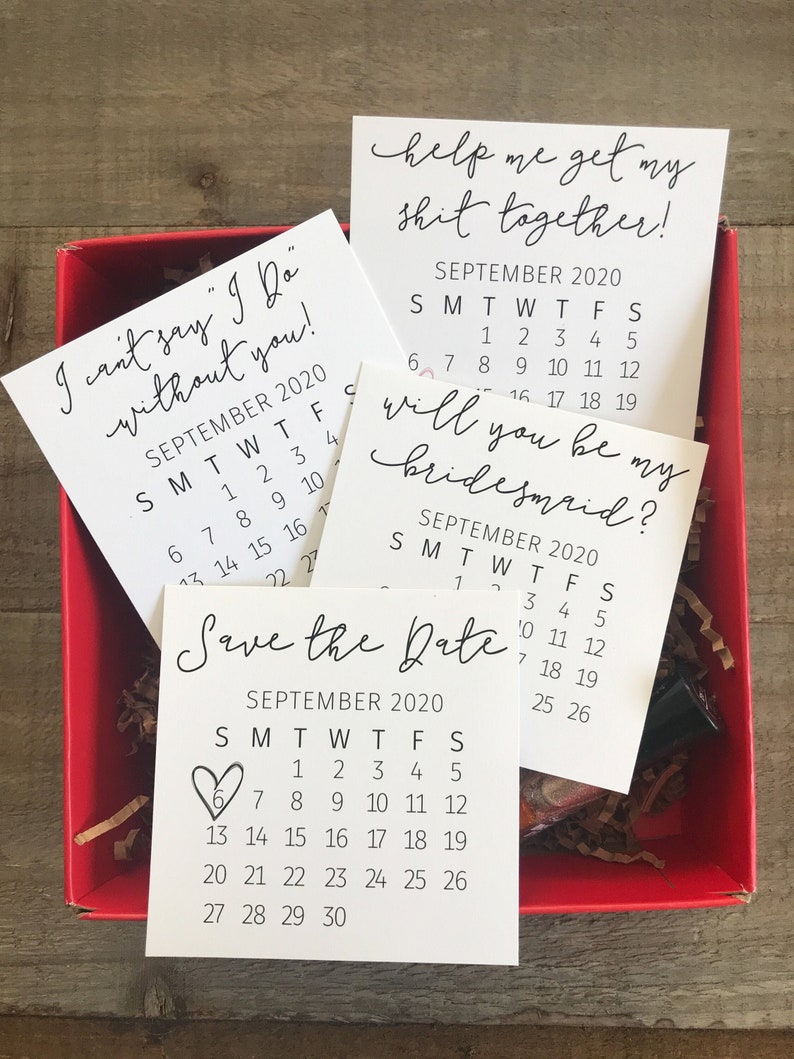 help me get my
shit together!
SEPTEMBER 2020
S M T W T F S
1 2 3 4 5
6 7 8 9 10 11 12
15 16 17 18 19
I can't say "I Do"
without you!
SEPTEMBER 2020
S M T W T F S
1 2 3 4
6 7 8 9 10
13 14 15 16
22 23
will you be my
bridesmaid?
SEPTEMBER 2020
S M T W T F S
1 2 3 4 5
10 11 12
18 19
25 26
Save the Date
SEPTEMBER 2020
S M T W T F S
1 2 3 4 5
6 7 8 9 10 11 12
13 14 15 16 17 18 19
20 21 22 23 24 25 26
27 28 29 30